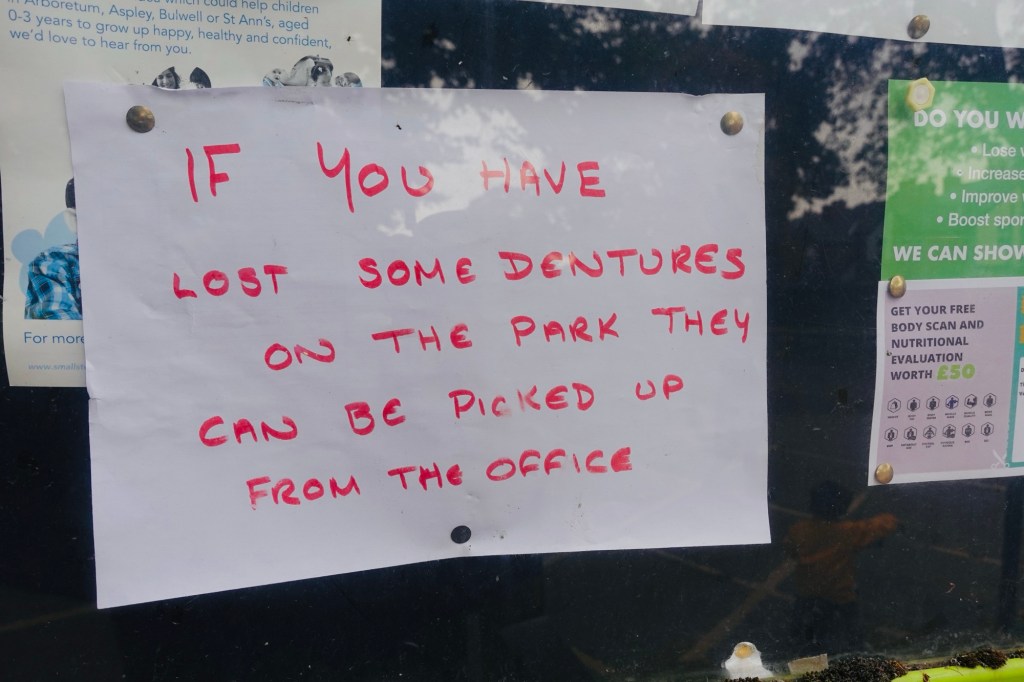 which could help children
in Arboretum, Aspley, Bulwell or St Ann's, aged
0-3 years to grow up happy, healthy and confident,
we'd love to hear from you.
For more
IF YOU HAVE
LOST SOME DENTURES
ON THE PARK THEY
CAN BE PICKED UP
FROM THE OFFICE
DO YOU W
• Lose
• Increase
• Improve
• Boost spor
WE CAN SHOW
GET YOUR FREE
BODY SCAN AND
NUTRITIONAL
EVALUATION
WORTH £50